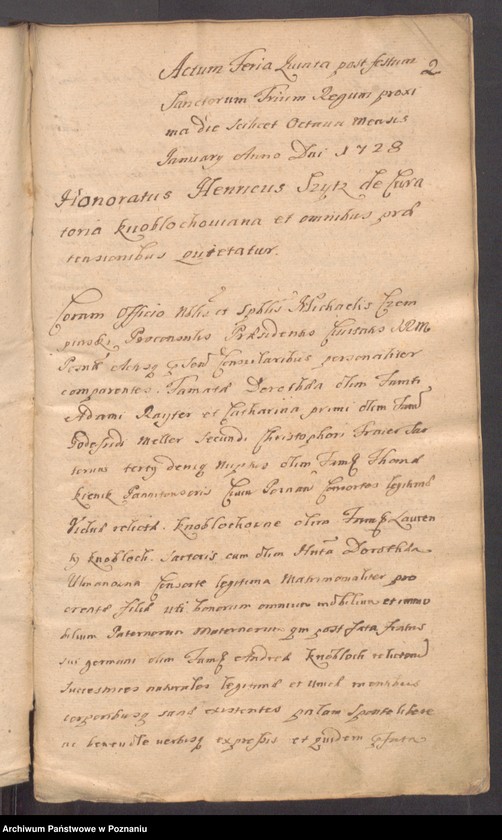 Actum Feria Quinta post festum
2
Sanctorum Trium Regum proxi
ma die scilicet Octava Mensis
January Anno Dni 1728
Honoratus Henricus Szytz de Cura
toria Knoblochoviana et omnibus præ
tensionibus quietatur.
Coram Officio Nblis et Spblis Michaelis Czem
pinski Proconsulis Præsidentis Civitatis
personaliter
comparentes. Famatæ Dorothea olim Famti
Adami Rayter et Catharina primi olim Fam
Godefridi Meller secundi Christophori Fraier Sar
torum tertÿ deniq nuptus olim Famti Thomæ
Kienik Pannitonsoris Civium Posnan Consortes legitimæ
Viduæ relictæ. Knoblochovne olim Famti Lauren
tÿ Knobloch Sartoris cum olim Hnta Dorothea
Ulmanowna Consorte legitima Matrimonialiter pro
creatæ filiæ uti bonorum omnium mobilium et immo
bilium Paternorum Maternorum qm post fata Fratris
sui germani olim Famti Andreæ Knobloch relictorum
Successtrices naturales legitimæ et unicæ mentibus
corporibusq sanæ existentes palam sponte libere
ac benevole verbisq expressis et quidem